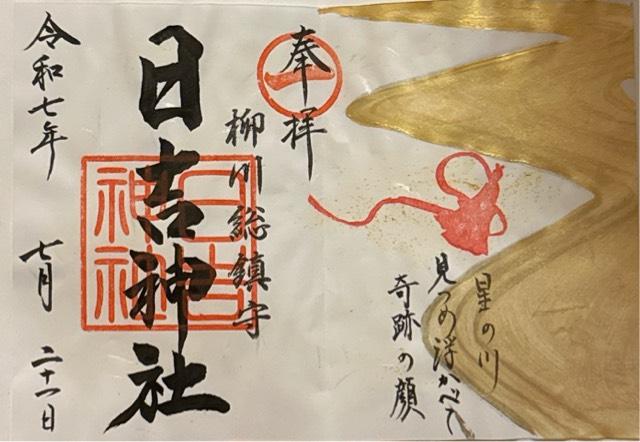 奉拝
柳川総鎮守
日吉神社
日吉神社
令和七年 七月 二十一日
星の川
見つめ浮かべて
奇跡の顔